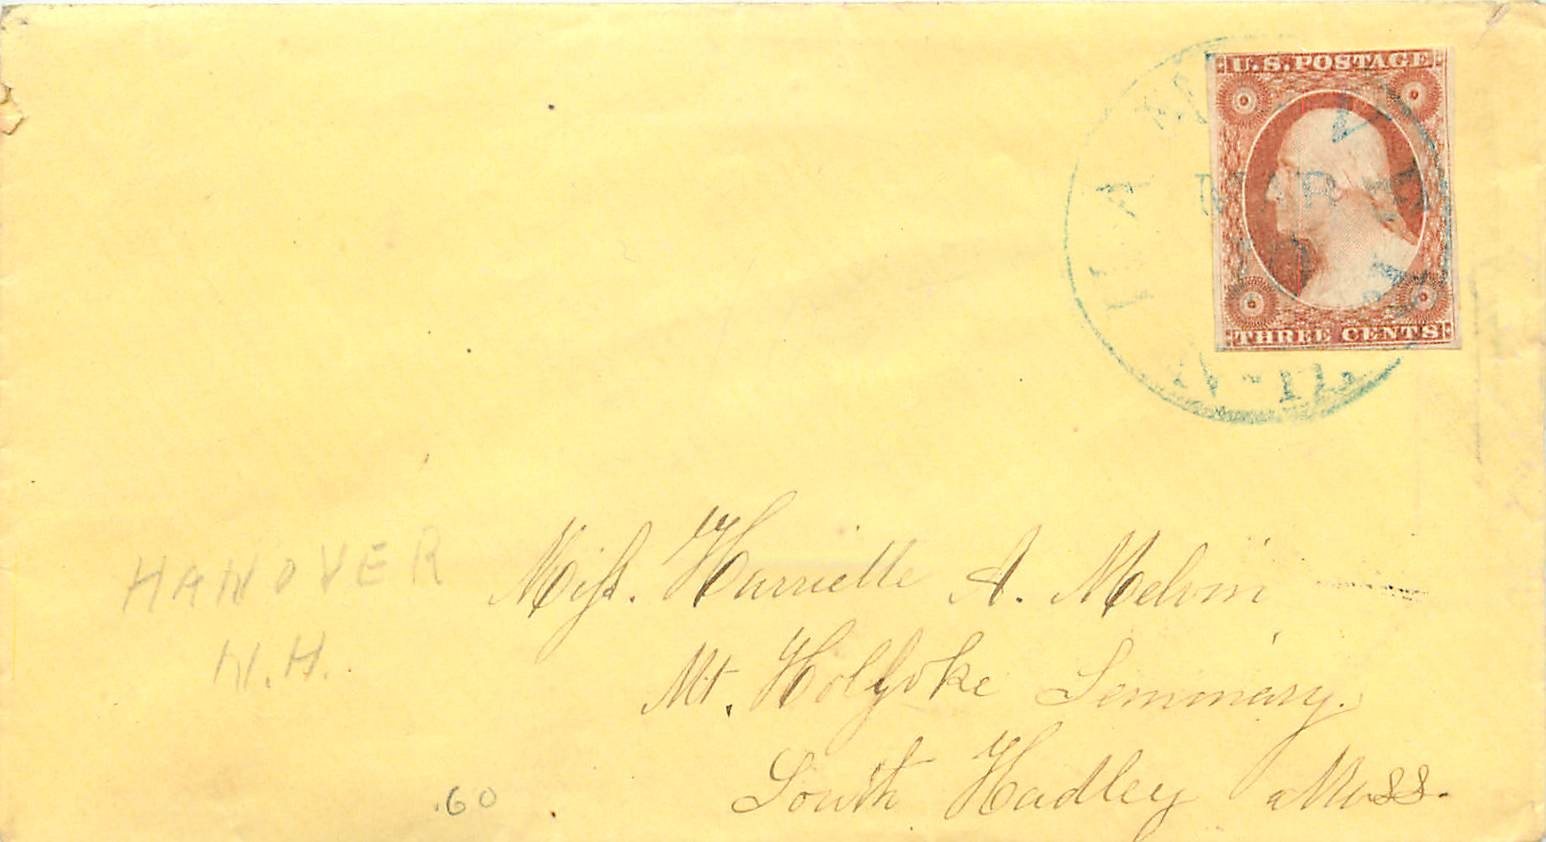 U.S. POSTAGE
HANOVER
MAR
N.H.
THREE CENTS
HANOVER
N.H.
Miss. Harriette A. Melvin
Mt. Holyoke Seminary.
South Hadley Mass.
.60